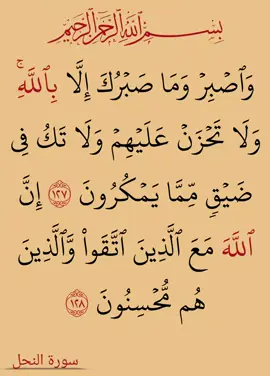 بِسْمِ ٱللَّهِ ٱلرَّحْمَٰنِ ٱلرَّحِيمِ
وَٱصْبِرْ وَمَا صَبْرُكَ إِلَّا بِٱللَّهِۚ
وَلَا تَحْزَنْ عَلَيْهِمْ وَلَا تَكُ فِى
ضَيْقٍۢ مِّمَّا يَمْكُرُونَ ١٢٧ إِنَّ
ٱللَّهَ مَعَ ٱلَّذِينَ ٱتَّقَوا۟ وَّٱلَّذِينَ
هُم مُّحْسِنُونَ ١٢٨
سورة النحل